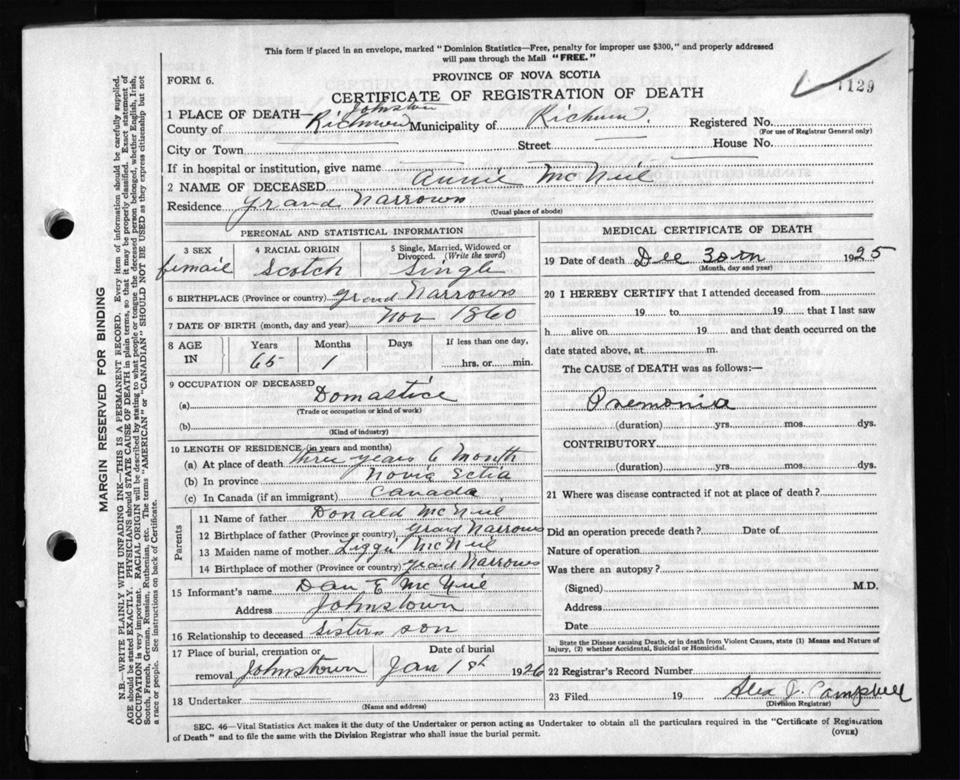 This form if placed in an envelope, marked "Dominion Statistics—Free, penalty for improper use $300," and properly addressed
will pass through the Mail "FREE."
FORM 6.
PROVINCE OF NOVA SCOTIA
1129
CERTIFICATE OF REGISTRATION OF DEATH
Johnstown
1 PLACE OF DEATH—
County of Richmond Municipality of Richmond. Registered No.
(For use of Registrar General only)
City or Town Street House No.
If in hospital or institution, give name
2 NAME OF DECEASED Annie McNeil
Residence Grand Narrows
(Usual place of abode)
PERSONAL AND STATISTICAL INFORMATION
3 SEX 4 RACIAL ORIGIN 5 Single, Married, Widowed or Divorced. (Write the word)
femail Scotch Single
6 BIRTHPLACE (Province or country) Grand Narrows
7 DATE OF BIRTH (month, day and year) Nov 1860
8 AGE IN Years Months Days If less than one day,
65 1 hrs. or min.
9 OCCUPATION OF DECEASED
(a) Domastice
(Trade or occupation or kind of work)
(b)
(Kind of industry)
10 LENGTH OF RESIDENCE (in years and months)
(a) At place of death three years 6 month
(b) In province Novia Sctia
(c) In Canada (if an immigrant) Canada
Parents
11 Name of father Donald McNeil
12 Birthplace of father (Province or country) Grand Narrows
13 Maiden name of mother McNeil
14 Birthplace of mother (Province or country) Grand Narrows
15 Informant's name Dan E McNeil
Address Johnstown
16 Relationship to deceased Sisters son
17 Place of burial, cremation or removal Johnstown Date of burial Jan 1st 1926
18 Undertaker
(Name and address)
MEDICAL CERTIFICATE OF DEATH
19 Date of death Dec 1925
(Month, day and year)
20 I HEREBY CERTIFY that I attended deceased from
19 to 19 that I last saw
h alive on 19 and that death occurred on the
date stated above, at m.
The CAUSE of DEATH was as follows:—
Pnemonia
(duration) yrs. mos. dys.
CONTRIBUTORY
(duration) yrs. mos. dys.
21 Where was disease contracted if not at place of death?
Did an operation precede death? Date of
Nature of operation
Was there an autopsy?
(Signed) M.D.
Address
Date
State the Disease causing Death, or in death from Violent Causes, state (1) Means and Nature of
Injury, (2) whether Accidental, Suicidal or Homicidal.
22 Registrar's Record Number
23 Filed 19 Alex J. Campbell
(Division Registrar)
SEC. 46—Vital Statistics Act makes it the duty of the Undertaker or person acting as Undertaker to obtain all the particulars required in the "Certificate of Registration
of Death" and to file the same with the Division Registrar who shall issue the burial permit.
(OVER)
MARGIN RESERVED FOR BINDING
N.B.—WRITE PLAINLY WITH UNFADING INK—THIS IS A PERMANENT RECORD. Every item of information should be carefully supplied.
AGE should be stated EXACTLY. PHYSICIANS should STATE CAUSE OF DEATH in plain terms, so that it may be properly classified. Exact statement of
OCCUPATION is very important. RACIAL ORIGIN will be described by stating to what people or tongue the deceased person belonged, whether English, Irish,
Scotch, French, German, Russian, Ruthenian, etc. The terms "AMERICAN" or "CANADIAN" SHOULD NOT BE USED as they express citizenship but not
a race or people. See instructions on back of Certificate.